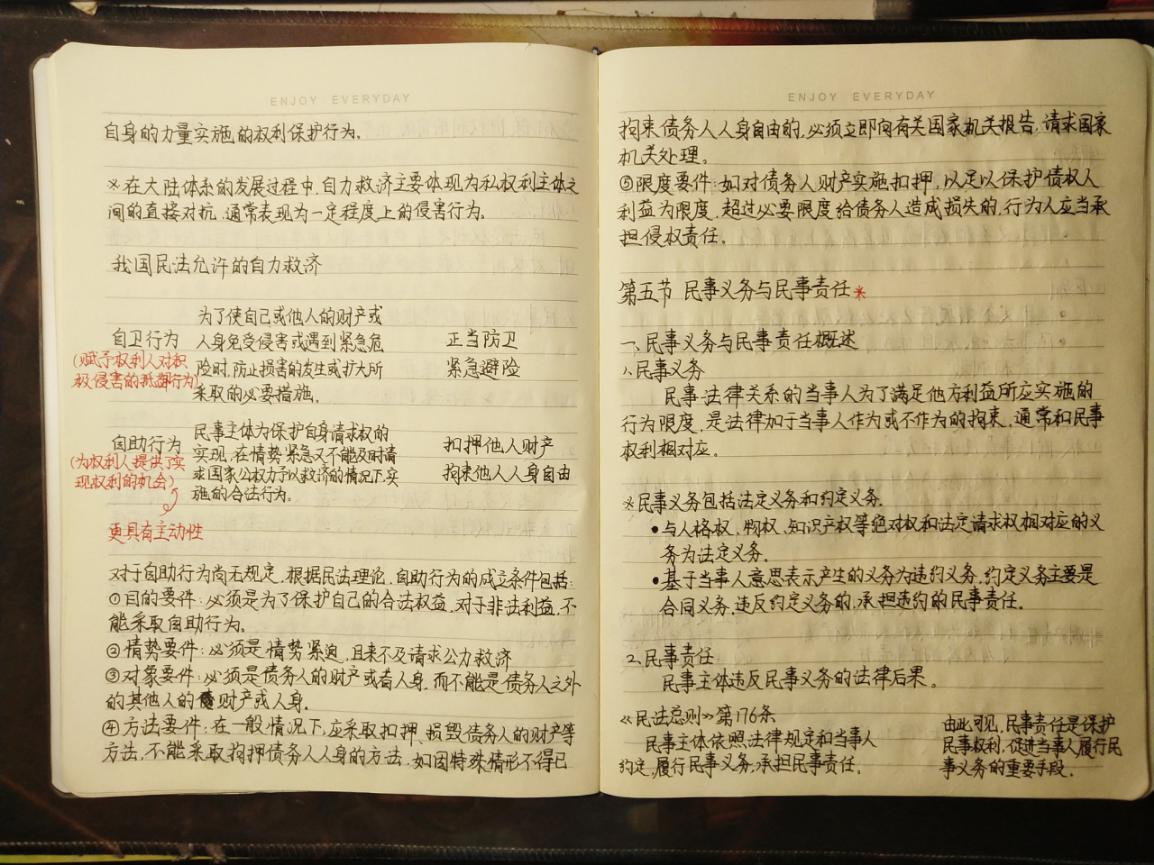 ENJOY EVERYDAY
自身的力量实施的权利保护行为.
※在大陆体系的发展过程中,自力救济主要体现为私权利主体之
间的直接对抗,通常表现为一定程度上的侵害行为.
我国民法允许的自力救济
自卫行为
(赋予权利人对积
极侵害的抵御行为)
为了使自己或他人的财产或
人身免受侵害或遇到紧急危
险时,防止损害的发生或扩大所
采取的必要措施.
正当防卫
紧急避险
自助行为
(为权利人提供了实
现权利的机会)
更具有主动性
民事主体为保护自身请求权的
实现,在情势紧急又不能及时请
求国家公权力予以救济的情况下,实
施的合法行为。
扣押他人财产
拘束他人人身自由
对于自助行为尚无规定,根据民法理论,自助行为的成立条件包括:
①目的要件:必须是为了保护自己的合法权益,对于非法利益,不
能采取自助行为.
②情势要件:必须是情势紧迫,且来不及请求公力救济
③对象要件:必须是债务人的财产或者人身,而不能是债务人之外
的其他人的财产或人身.
④方法要件:在一般情况下,应采取扣押、损毁债务人的财产等
方法,不能采取拘押债务人人身的方法,如因特殊情形不得已
ENJOY EVERYDAY
拘束债务人人身自由的,必须立即向有关国家机关报告,请求国家
机关处理。
⑤限度要件:如对债务人财产实施扣押,以足以保护债权人
利益为限度,超过必要限度给债务人造成损失的,行为人应当承
担侵权责任.
第五节 民事义务与民事责任*
一、民事义务与民事责任概述
1.民事义务
民事法律关系的当事人为了满足他方利益所应实施的
行为限度,是法律加于当事人作为或不作为的拘束,通常和民事
权利相对应。
※民事义务包括法定义务和约定义务.
•与人格权、物权、知识产权等绝对权和法定请求权相对应的义
务为法定义务.
•基于当事人意思表示产生的义务为违约义务,约定义务主要是
合同义务,违反约定义务的,承担违约的民事责任.
2.民事责任
民事主体违反民事义务的法律后果。
《民法总则》第176条
民事主体依照法律规定和当事人
约定,履行民事义务,承担民事责任.
由此可见,民事责任是保护
民事权利,促进当事人履行民
事义务的重要手段.